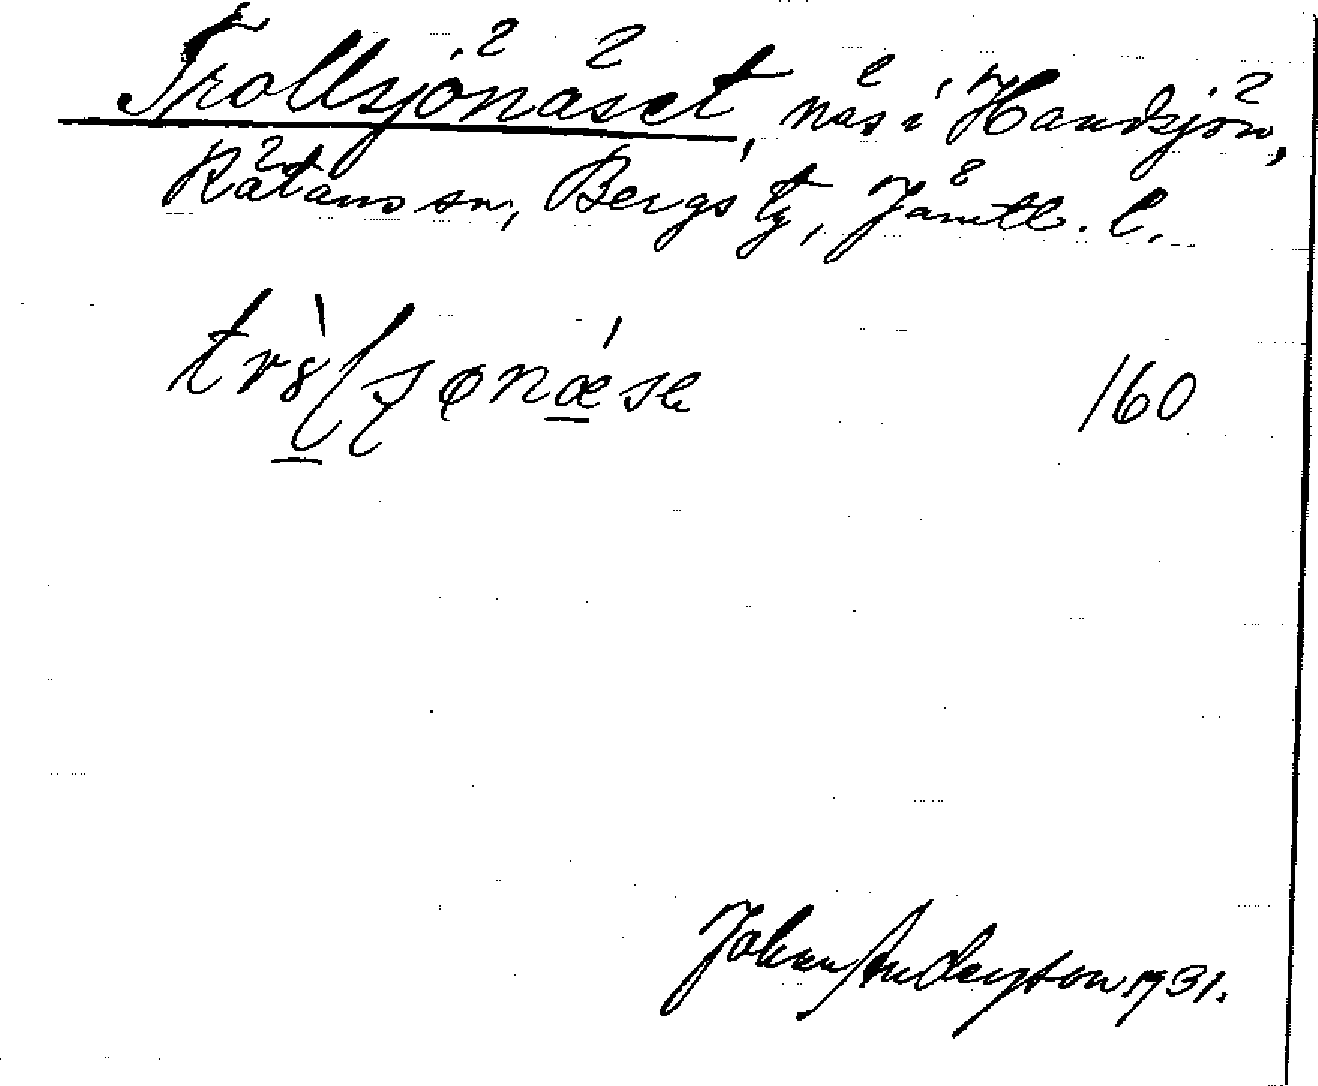 Trollsjönäset, näs i Handsjön,
Rätans sn, Bergs tg, Jämtl. l.
160
Johan Anderson 1931.